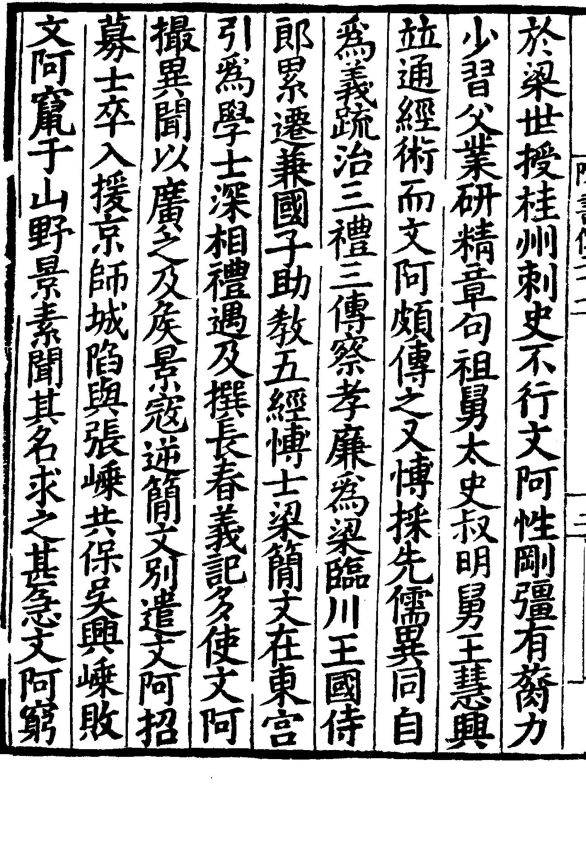 於梁世授桂州刺史不行文阿性剛彊有膂力
少習父業研精章句祖舅太史叔明舅王慧興
並通經術而文阿頗傳之又博採先儒異同自
爲義疏治三禮三傳察孝廉爲梁臨川王國侍
郎累遷兼國子助教五經博士梁簡文在東宮
引爲學士深相禮遇及撰長春義記多使文阿
撮異聞以廣之及矦景寇逆簡文別遣文阿招
募士卒入援京師城陷與張嵊共保吳興嵊敗
文阿竄于山野景素聞其名求之甚急文阿窮